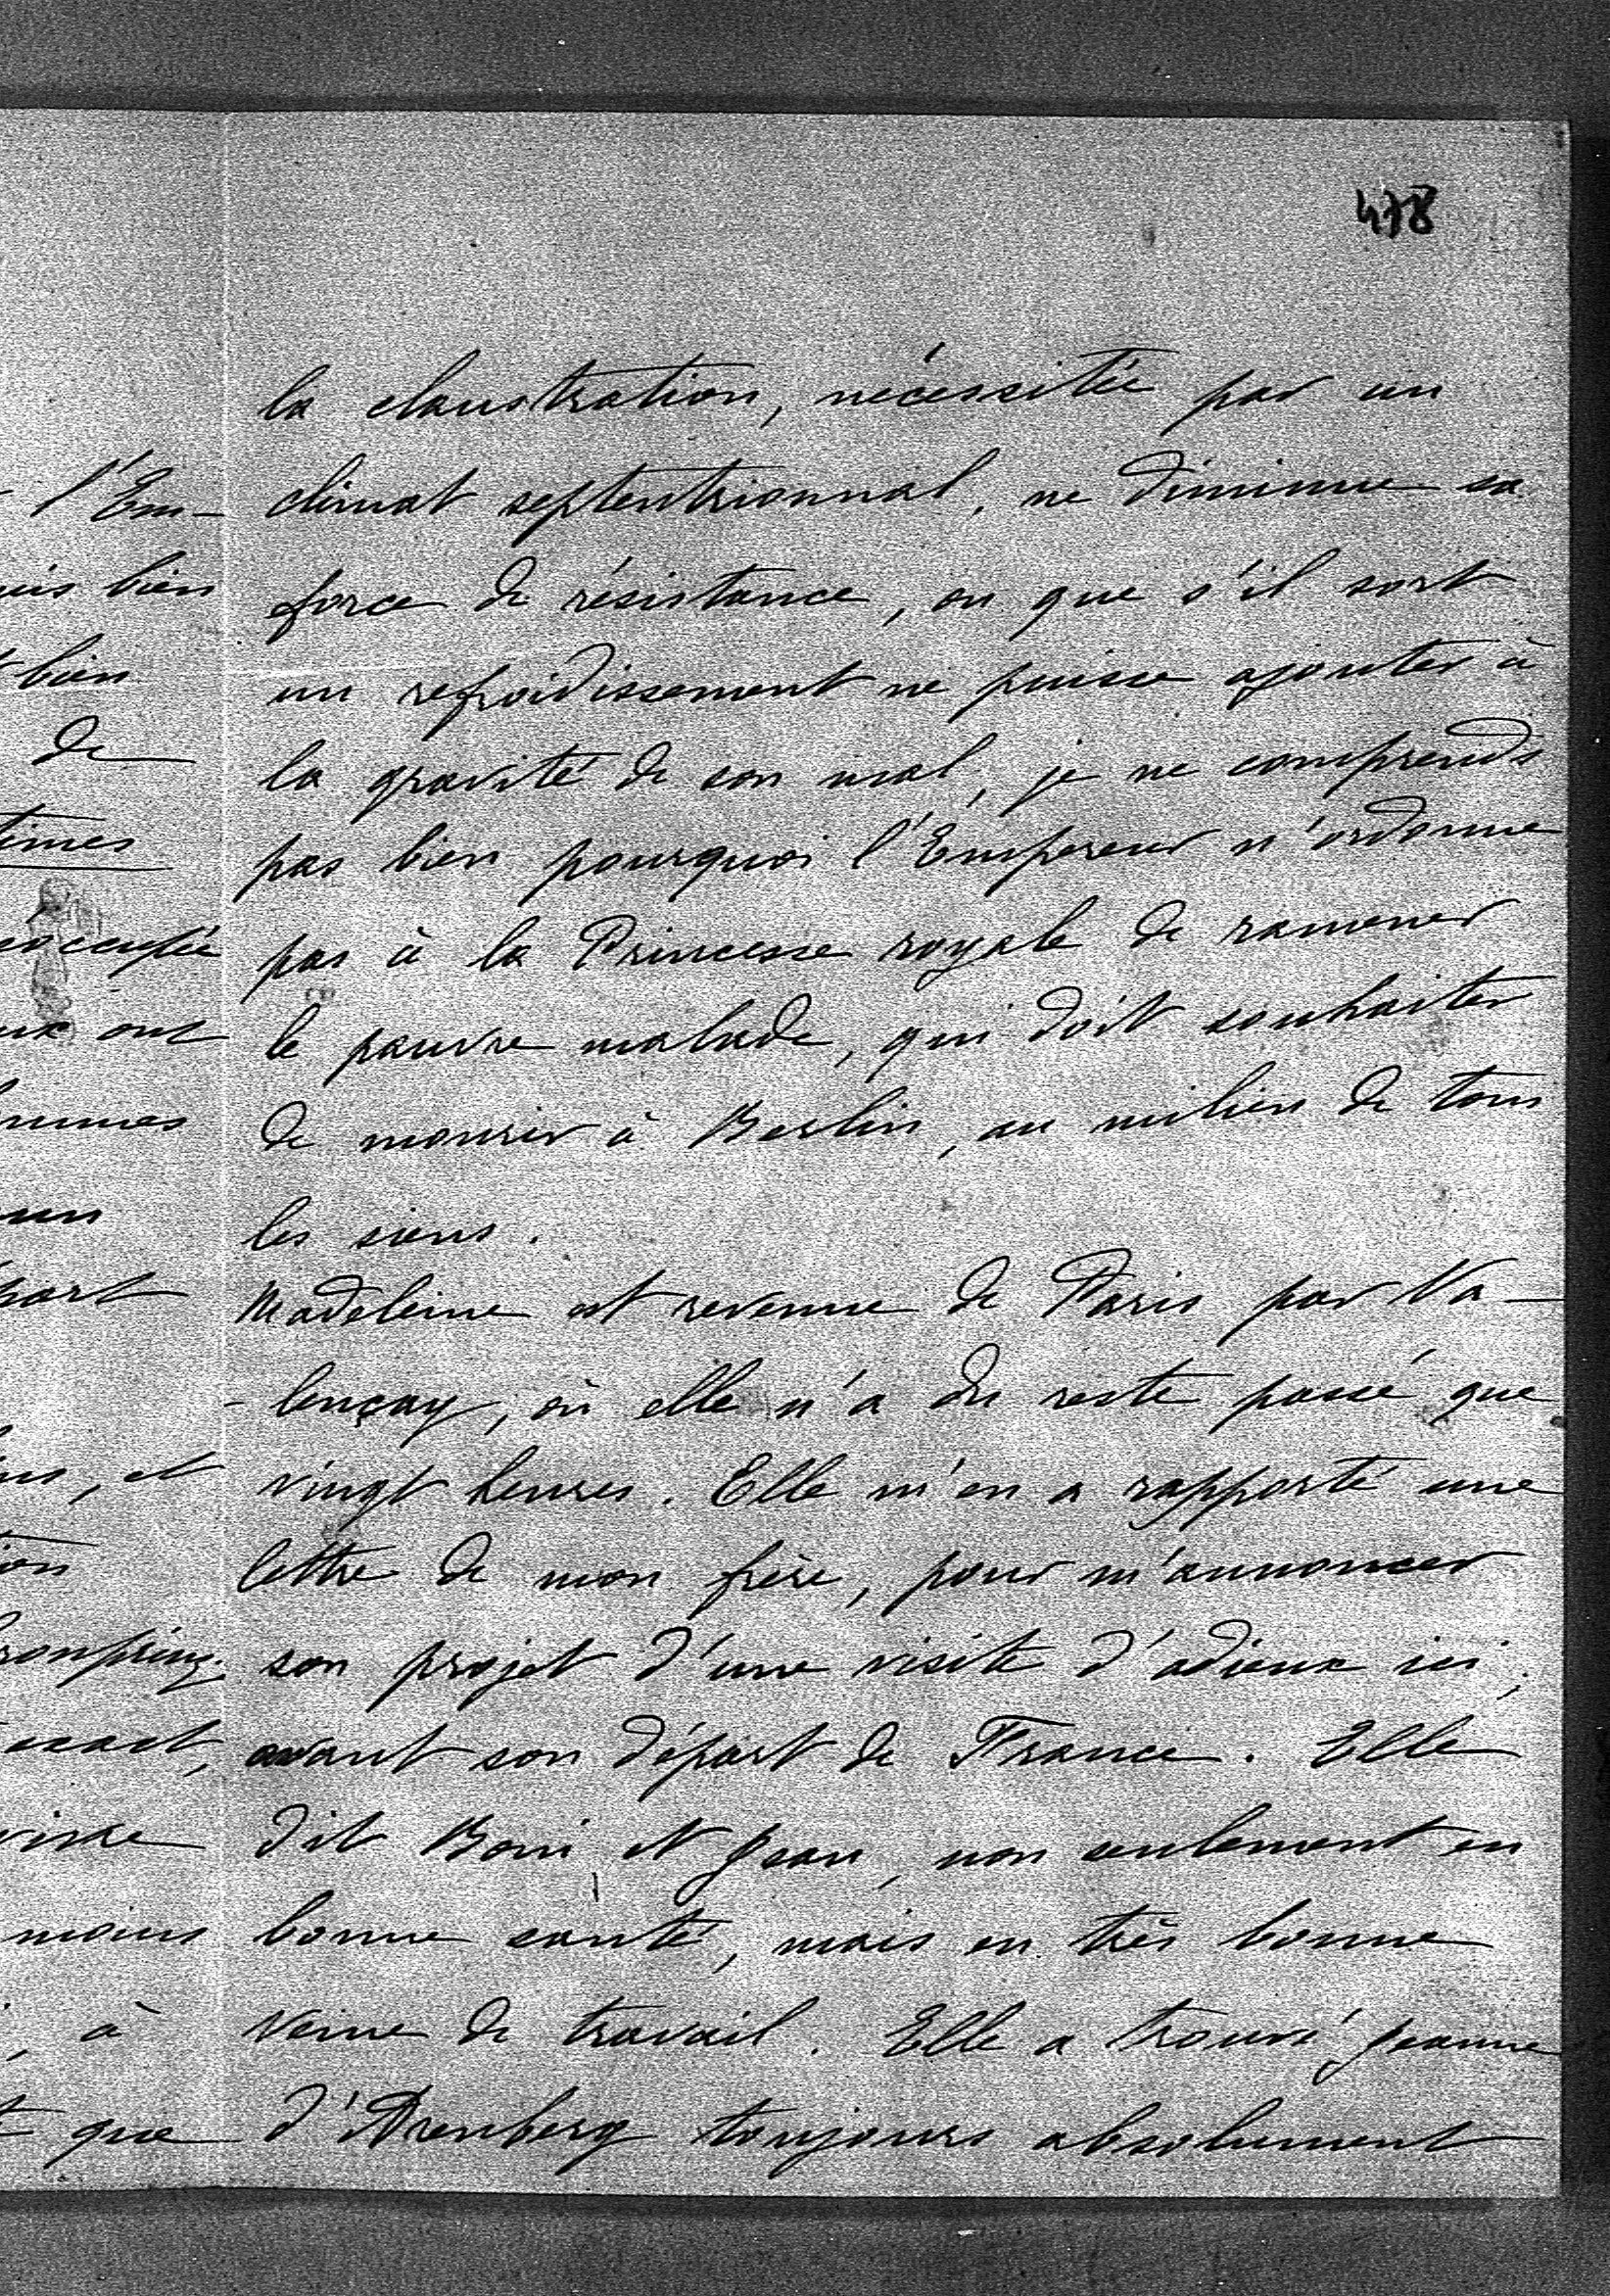 478
la claustration, nécessitée par un
climat septentrionnal, ne diminue sa
force de résistance, ou que s'il sort
un refroidissement ne puisse ajouter à
la gravité de son mal, je ne comprends
pas bien pourquoi l'Empereur n'ordonne
pas à la Princesse royale de ramener
le pauvre malade, qui doit souhaiter
de mourir à Berlin, au milieu de tous
les siens.
Madeleine est revenue de Paris par Va-
-lençay, où elle n'a du reste passé que
vingt heures. Elle m'en a rapporté une
lettre de mon frère, pour m'annoncer
son projet d'une visite d'adieux ici,
avant son départ de France. Elle
dit Boni et Jean, non seulement en
bonne santé, mais en très bonne
veine de travail. Elle a trouvé Jeanne
d'Arenberg toujours absolument
l'Em-
bien
bien
de
ont
moins
à
que